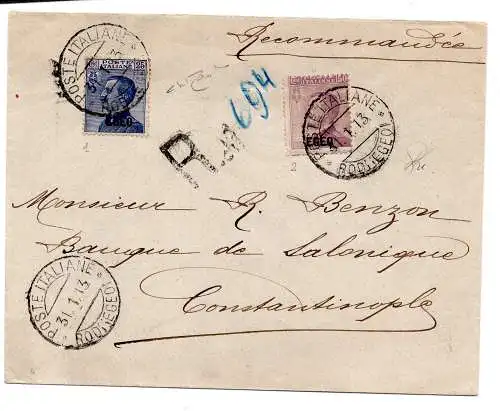 Recommandée
POSTE ITALIANE
25 POSTE ITALIANE 25
EGEO
1
R
694
EGEO
2
POSTE ITALIANE
31.1.13
RODI(EGEO)
Monsieur R. Benzon
Banque de Salonique
Constantinople
POSTE ITALIANE
31.1.13
RODI(EGEO)